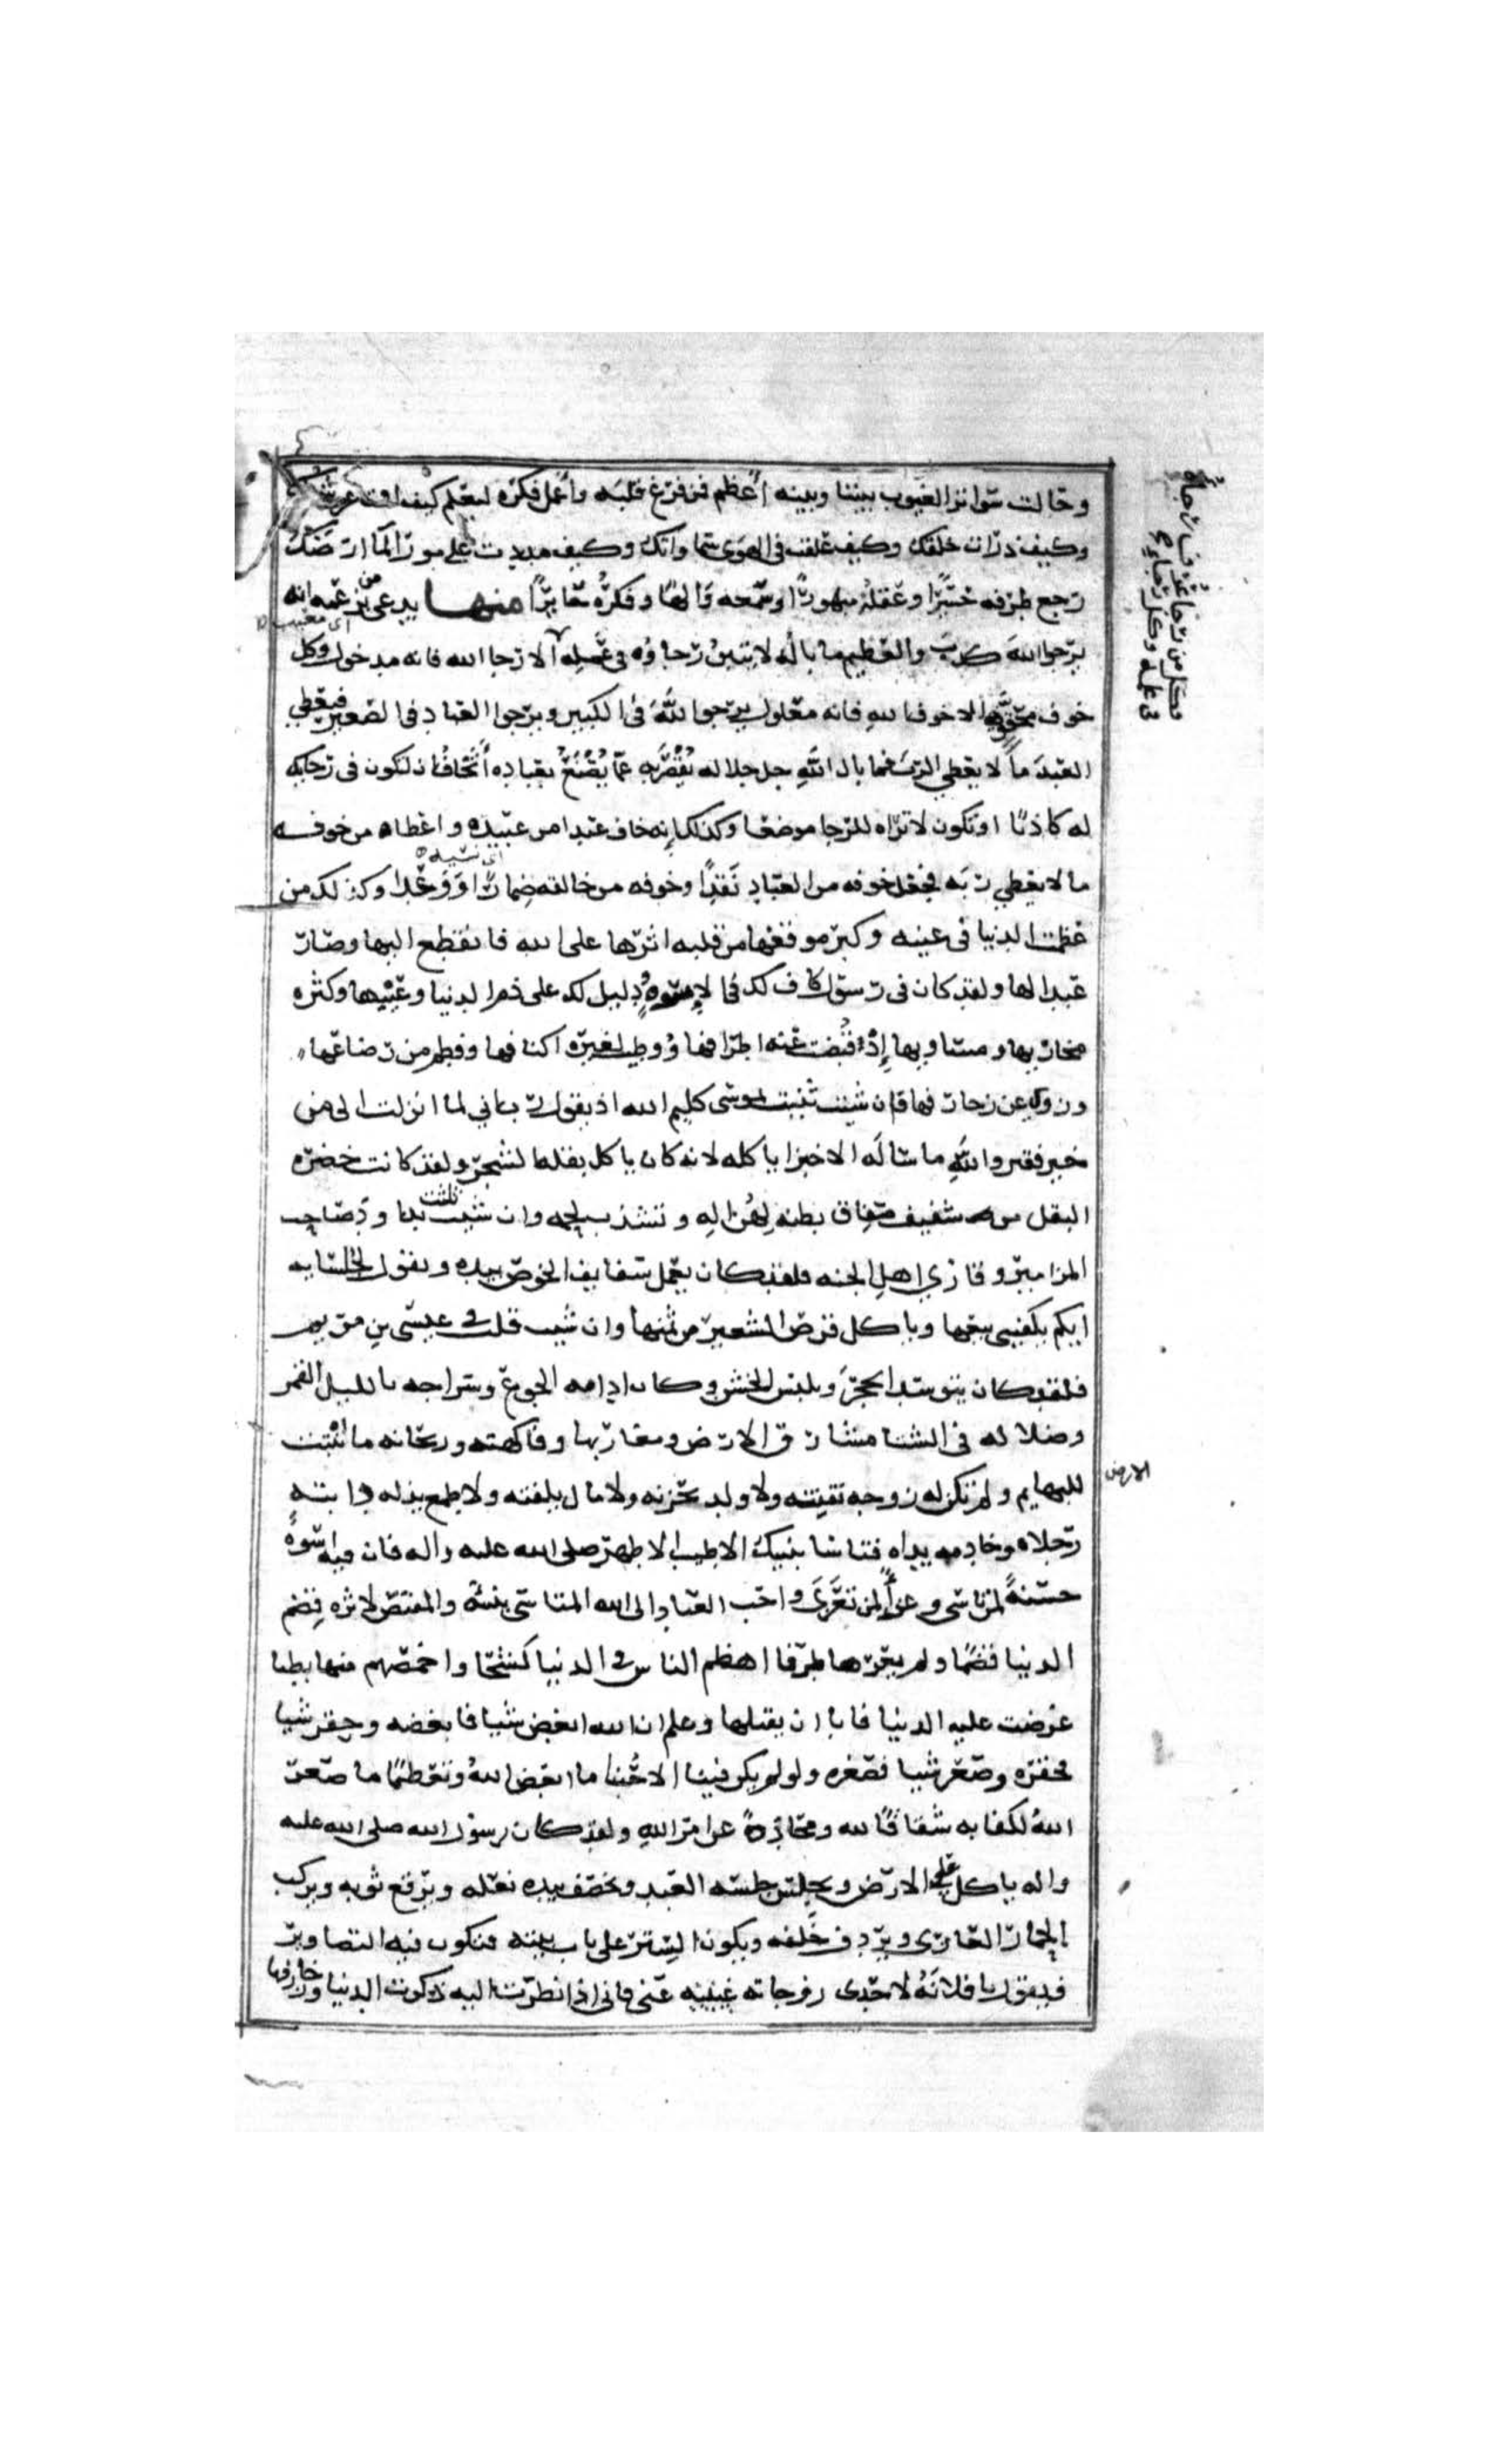 وحالت سواتر الغيوب بيننا وبينه أعظم فمن فرغ قلبه وأعمل فكره ليعلم كيف اقمت عرشك
وكيف ذرات خلقك وكيف علقت في الهوى سماواتك وكيف مددت على مور الماء ارضك
رجع طرفه حسيرا وعقله مبهورا وسمعه والها وفكره حائرا منها يدعي بزعمه انه
يرجوا الله كذب والعظيم ما باله لا يتبين رجاؤه في عمله الا رجا الله فانه مدخول وكل
اي معيب
خوف محقق الا خوف الله فانه معلول يرجوا الله في الكبير ويرجوا العباد في الصغير فيعطي
العبد ما لا يعطي الرب فما بال الله جل جلاله يقصر به عما يصنع بعباده أتخاف ان تكون في رجائك
له كاذبا او تكون لا تراه للرجا موضعا وكذلك إنه خاف عبدا من عبيده واعطاه من خوفه
ما لا يعطي ربه فجعل خوفه من العباد نقدا وخوفه من خالقه ضمارا ووعدا وكذلك من
عظمت الدنيا في عينه وكبر موقعها من قلبه اثرها على الله فانقطع اليها وصار
عبدا لها ولقد كان في رسول كاف لك في الاسوة ودليل لك على ذم الدنيا وعيبها وكثره
مخازيها ومساويها إذ قبضت عنه اطرافها ووطيت لغيره اكنافها وفطم من رضاعها
وزوي عن زخارفها فان شيت ثنيت بموسى كليم الله اذ يقول رب اني لما انزلت الي من
خير فقير والله ما ساله الا خبزا ياكله لانه كان ياكل بقله الشجر ولقد كانت خضره
البقل من شفيف صفاق بطنه لهزاله وتشذب لحمه وان شيت ثلثت بداود صاحب
المزامير وقاري اهل الجنه فلقد كان يعمل سفايف الخوص بيده ويقول لجلسايه
ايكم يكفيني بيعها وياكل قرص الشعير من ثمنها وان شيت قلت في عيسى بن مريم
فلقد كان يتوسد الحجر ويلبس الخشن وكان ادامه الجوع وسراجه بالليل القمر
وضلاله في الشتا مشارق الارض ومغاربها وفاكهته وريحانه ما تنبت
الارض
للبهايم ولم تكن له زوجه تفتنه ولا ولد يحزنه ولا مال يلفته ولا طمع يذله دابته
رجلاه وخادمه يداه فتاسا بنبيك الاطيب الاطهر صلى الله عليه واله فان فيه اسوة
حسنة لمن تاسى وعزأ لمن تعزى واحب العباد الى الله المتاسي بنبيه والمقتص لاثره قضم
الدنيا قضما ولم يعرها طرفا اهضم الناس في الدنيا كشحا واخمصهم منها بطنا
عرضت عليه الدنيا فابا ان يقبلها وعلم ان الله ابغض شيا فابغضه وحقر شيا
فحقره وصغر شيا فصغره ولو لم يكن فينا الا حبنا ما ابغض الله وتعظيمنا ما صغر
الله لكفا به شقاقا لله ومحادة عن امر الله ولقد كان رسول الله صلى الله عليه
واله ياكل على الارض ويجلس جلسه العبد ويخصف بيده نعله ويرقع ثوبه ويركب
الحمار العاري ويردف خلفه ويكون الستر على باب بيته فتكون فيه التصاوير
فيقول يا فلانه لاحدى زوجاته غيبيه عني فاني اذا نظرت اليه ذكرت الدنيا وزخارفها